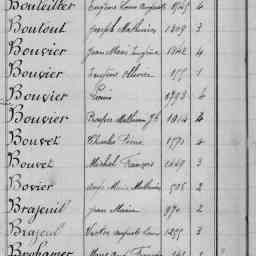 Bouteiller Eugène Louis Auguste 4
Boutout Joseph Mathurin 1809 3
Bouvier Jean Marie Eugène 1842 4
Bouvier Eugène Olivier 1
Bouvier Louis 1793 4
Bouvier Mathurin 1814 4
Bouvet Charles Pierre 1770 4
Bouvet Michel François 1669 3
Bovier Marie Mathurin 505 2
Brajeuil Jean Marie 970 2
Brajeul Victor Auguste Louis 1255 3
Brohamer François